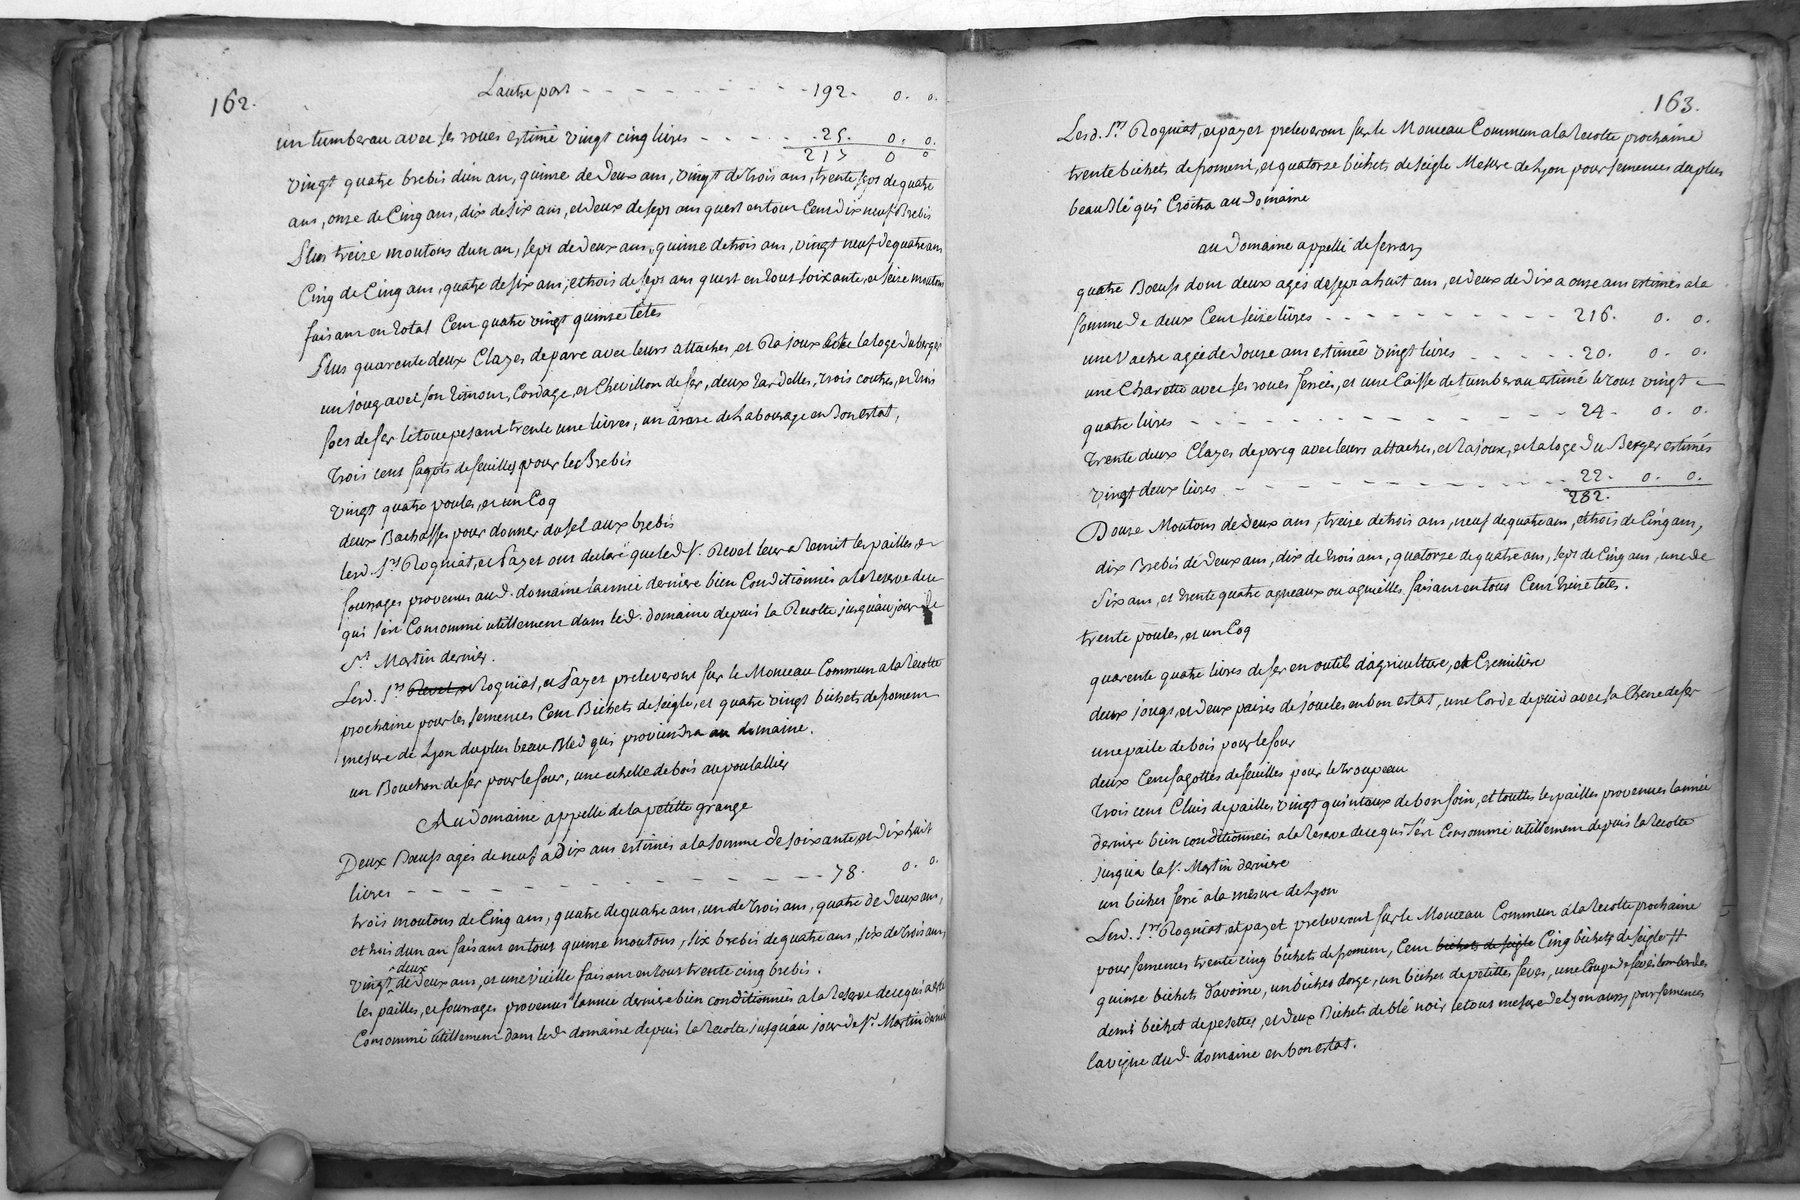 162.
L'autre part - - - - - - - - - 192. 0. 0.
un tumberau avec ses roues estimé vingt cinq livres - - - - - 25. 0. 0.
217 0 0
vingt quatre brebis d'un an, quinse de deux ans, vingt de trois ans, trente sept de quatre
ans, onse de Cinq ans, dix de six ans, et deux de sept ans quest en tout Cent dix neuf Brebis
Plus treize moutons dun an, sept de deux ans, quinse de trois ans, vingt neuf de quatre ans
Cinq de Cinq ans, quatre de six ans, et trois de sept ans quest en tout soixante et seize moutons
faisant en total Cent quatre vingt quinse têtes
Plus quarente deux Clayes de parc avec leurs attaches, et Rajoux la loge du berger
un joug avec son timon, Cordage, et Chevillon de fer, deux tardelles, trois coutres, et trois
socs de fer le tout pesant trente une livres, un araire de Labourage en bon estat,
trois cent fagots de feuilles pour les Brebis
vingt quatre poules, et un Coq
deux Bachasses pour donner du sel aux brebis
lesd. Srs Rogniat, et Payet ont declaré que led. Sr. Revel leur a Remit les pailles et
fourrages provenus aud. domaine l'année derniere bien Conditionnés a la Reserve de ce
qui s'est Consommé utillement dans led. domaine depuis la Recolte jusqu'au jour de
St. Martin dernier.
Lesd. Srs Revel et Rogniat, et Payet preleveront sur le Monceau Commun a la Recolte
prochaine pour les semences Cent Bichets de seigle, et quatre vingt bichets de froment
mesure de Lyon du plus beau Bled qui proviendra au domaine.
un Bouchon de fer pour le four, une echelle de bois au poulallier
Au domaine appelle de la petitte grange
Deux Bœufs agés de neuf a dix ans estimés a la somme de soixante et dix huit
livres - - - - - - - - - - - - - - - - 78. 0. 0.
trois moutons de Cinq ans, quatre de quatre ans, un de trois ans, quatre de deux ans,
et trois dun an faisant en tout quinse moutons, six brebis de quatre ans, six de trois ans,
deux
vingt de deux ans, et une vieille faisant en tout trente cinq brebis.
les pailles, et fourrages provenus l'année derniere bien conditionnés a la Reserve de ce qui a esté
Consommé utillement dans led. domaine depuis la Recolte jusqu'au jour de St. Martin dernier
163.
Lesd. Srs Rogniat, et payet preleveront sur le Monceau Commun a la Recolte prochaine
trente bichets de froment, et quatorse bichets de seigle Mesure de Lyon pour semences du plus
beau Blé qui Croitra au domaine
au domaine appellé de serran
quatre Bœufs dont deux agés de sept a huit ans, et deux de dix a onse ans estimés a la
somme de deux Cent seize livres - - - - - - - - - 216. 0. 0.
une Vache agée de douse ans estimée vingt livres - - - - - 20. 0. 0.
une Charette avec ses roues ferrées, et une Caisse de tumberau estimé le tout vingt
quatre livres - - - - - - - - - - - - - 24. 0. 0.
trente deux Clayes de parcq avec leurs attaches, et Rajoux, et la loge du Berger estimés
vingt deux livres - - - - - - - - - - - - 22. 0. 0.
282.
Douse Moutons de deux ans, treize de trois ans, neuf de quatre ans, et trois de Cinq ans,
dix Brebis de deux ans, dix de trois ans, quatorze de quatre ans, sept de Cinq ans, une de
six ans, et trente quatre agneaux ou agnelles faisant en tous Cent treize tetes.
trente poules, et un Coq
quarente quatre livres de fer en outils d'agriculture, et Cremilière
deux jougs, et deux paires de joucles en bon estat, une Corde de puid avec sa Chene de fer
une paile de bois pour le four
deux Cent fagottes de feuilles pour le troupeau
trois cent Cluis de pailles, vingt quintaux de bon foin, et touttes les pailles provenues l'année
derniere bien conditionnées a la Reserve de ce qui s'est Consommé utillement depuis la Recolte
jusqu'a la St. Martin derniere
un bichet ferré a la mesure de Lyon
Lesd. Srs Rogniat, et payet preleveront sur le Monceau Commun a la Recolte prochaine
pour semences trente cinq bichets de froment, Cent bichets de seigle Cinq bichets de seigle
quinse bichets d'avoine, un bichet dorge, un bichet de petittes feves, une Coupe de feves lombardes
demi bichet de pesettes, et deux Bichets de blé noir le tout mesure de Lyon aussy pour semences
la vigne dud. domaine en bon estat.